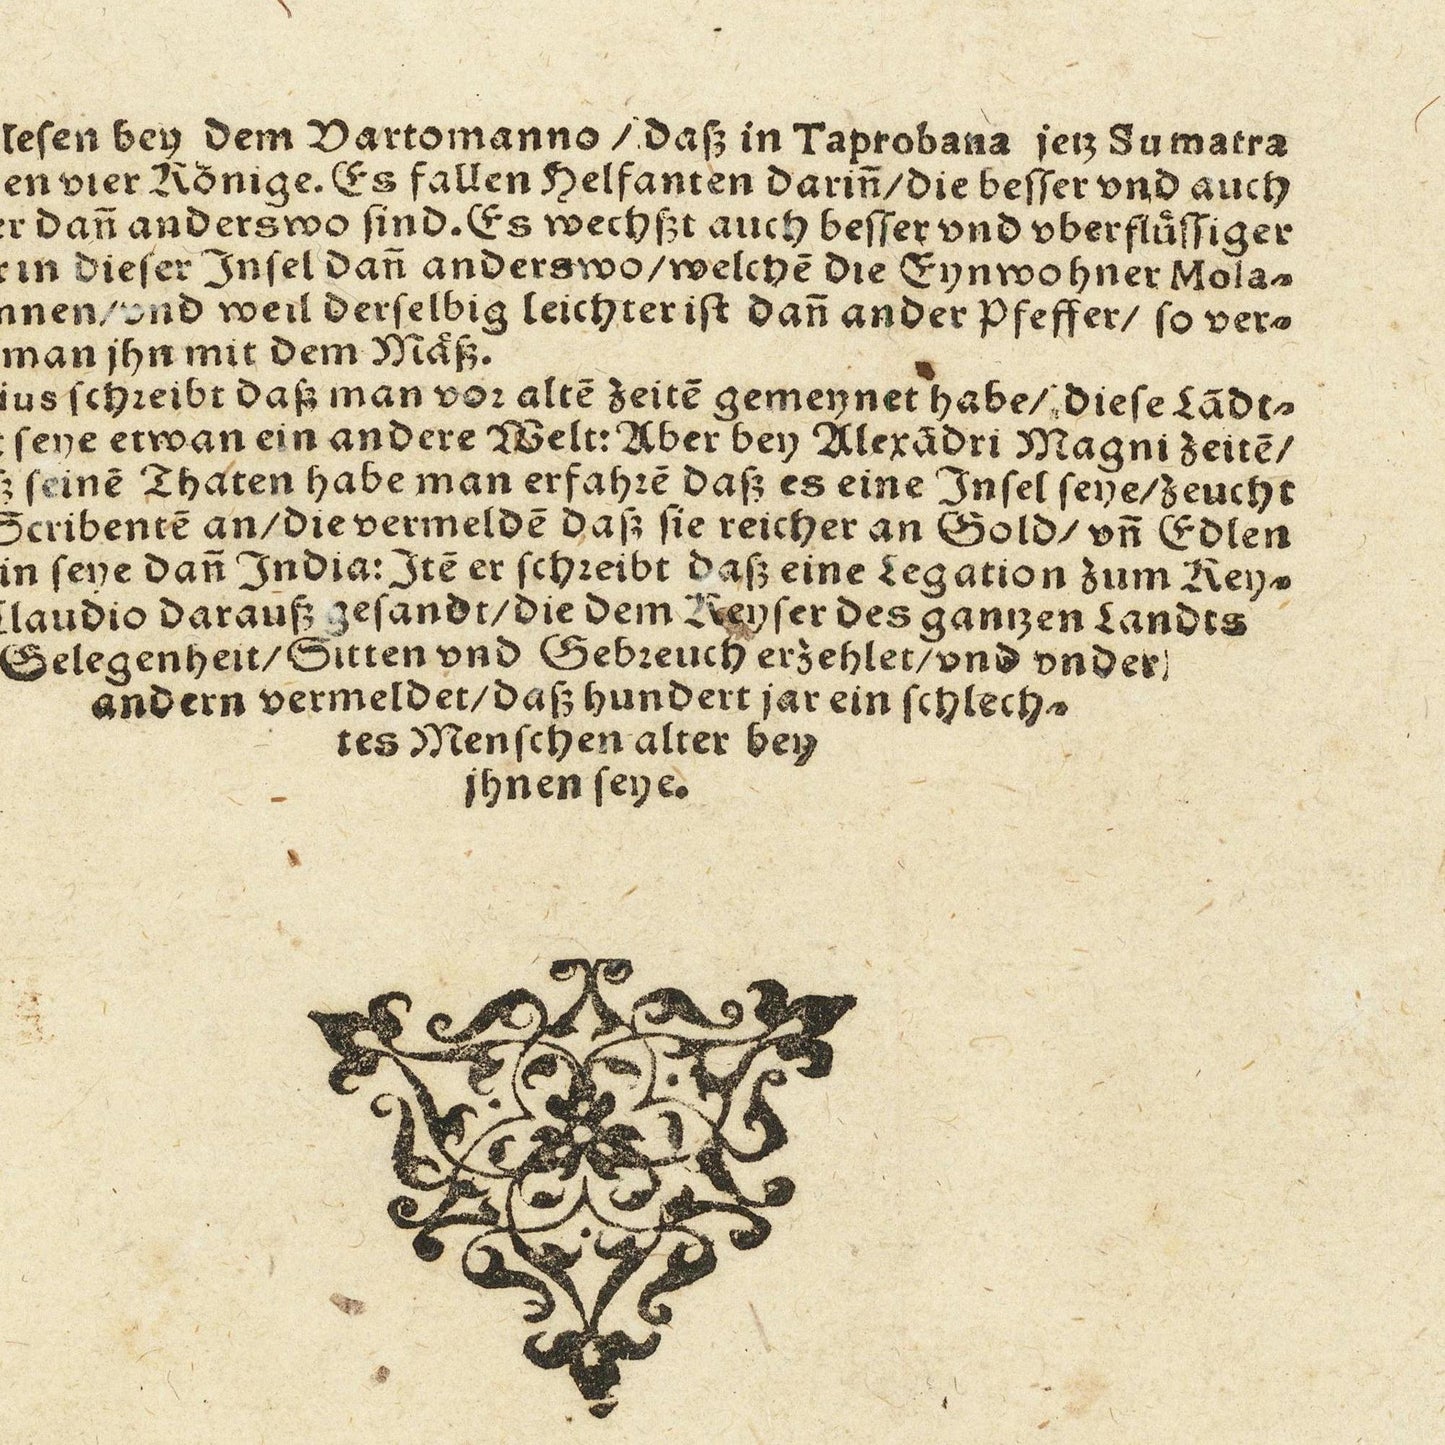 lesen bey dem Vartomanno / daß in Taprobana jetz Sumatra
en vier Könige. Es fallen Helfanten darin̄/die besser vnd auch
er dan̄ anderswo sind. Es wechßt auch besser vnd vberflüssiger
r in dieser Insel dan̄ anderswo/welchē die Eynwohner Mola-
nnen/vnd weil derselbig leichter ist dan̄ ander Pfeffer/ so ver-
man jhn mit dem Mäß.
ius schreibt daß man vor altē zeitē gemeynet habe/ diese Lādt-
t seye etwan ein andere Welt: Aber bey Alexādri Magni zeitē/
ß seinē Thaten habe man erfahrē daß es eine Insel seye/zeucht
Scribentē an/die vermeldē daß sie reicher an Gold/ vn̄ Edlen
in seye dan̄ India: Itē er schreibt daß eine Legation zum Key-
Claudio darauß gesandt/die dem Keyser des gantzen Landts
Gelegenheit/Sitten vnd Gebreuch erzehlet/vnd vnder
andern vermeldet/daß hundert jar ein schlech-
tes Menschen alter bey
jhnen seye.